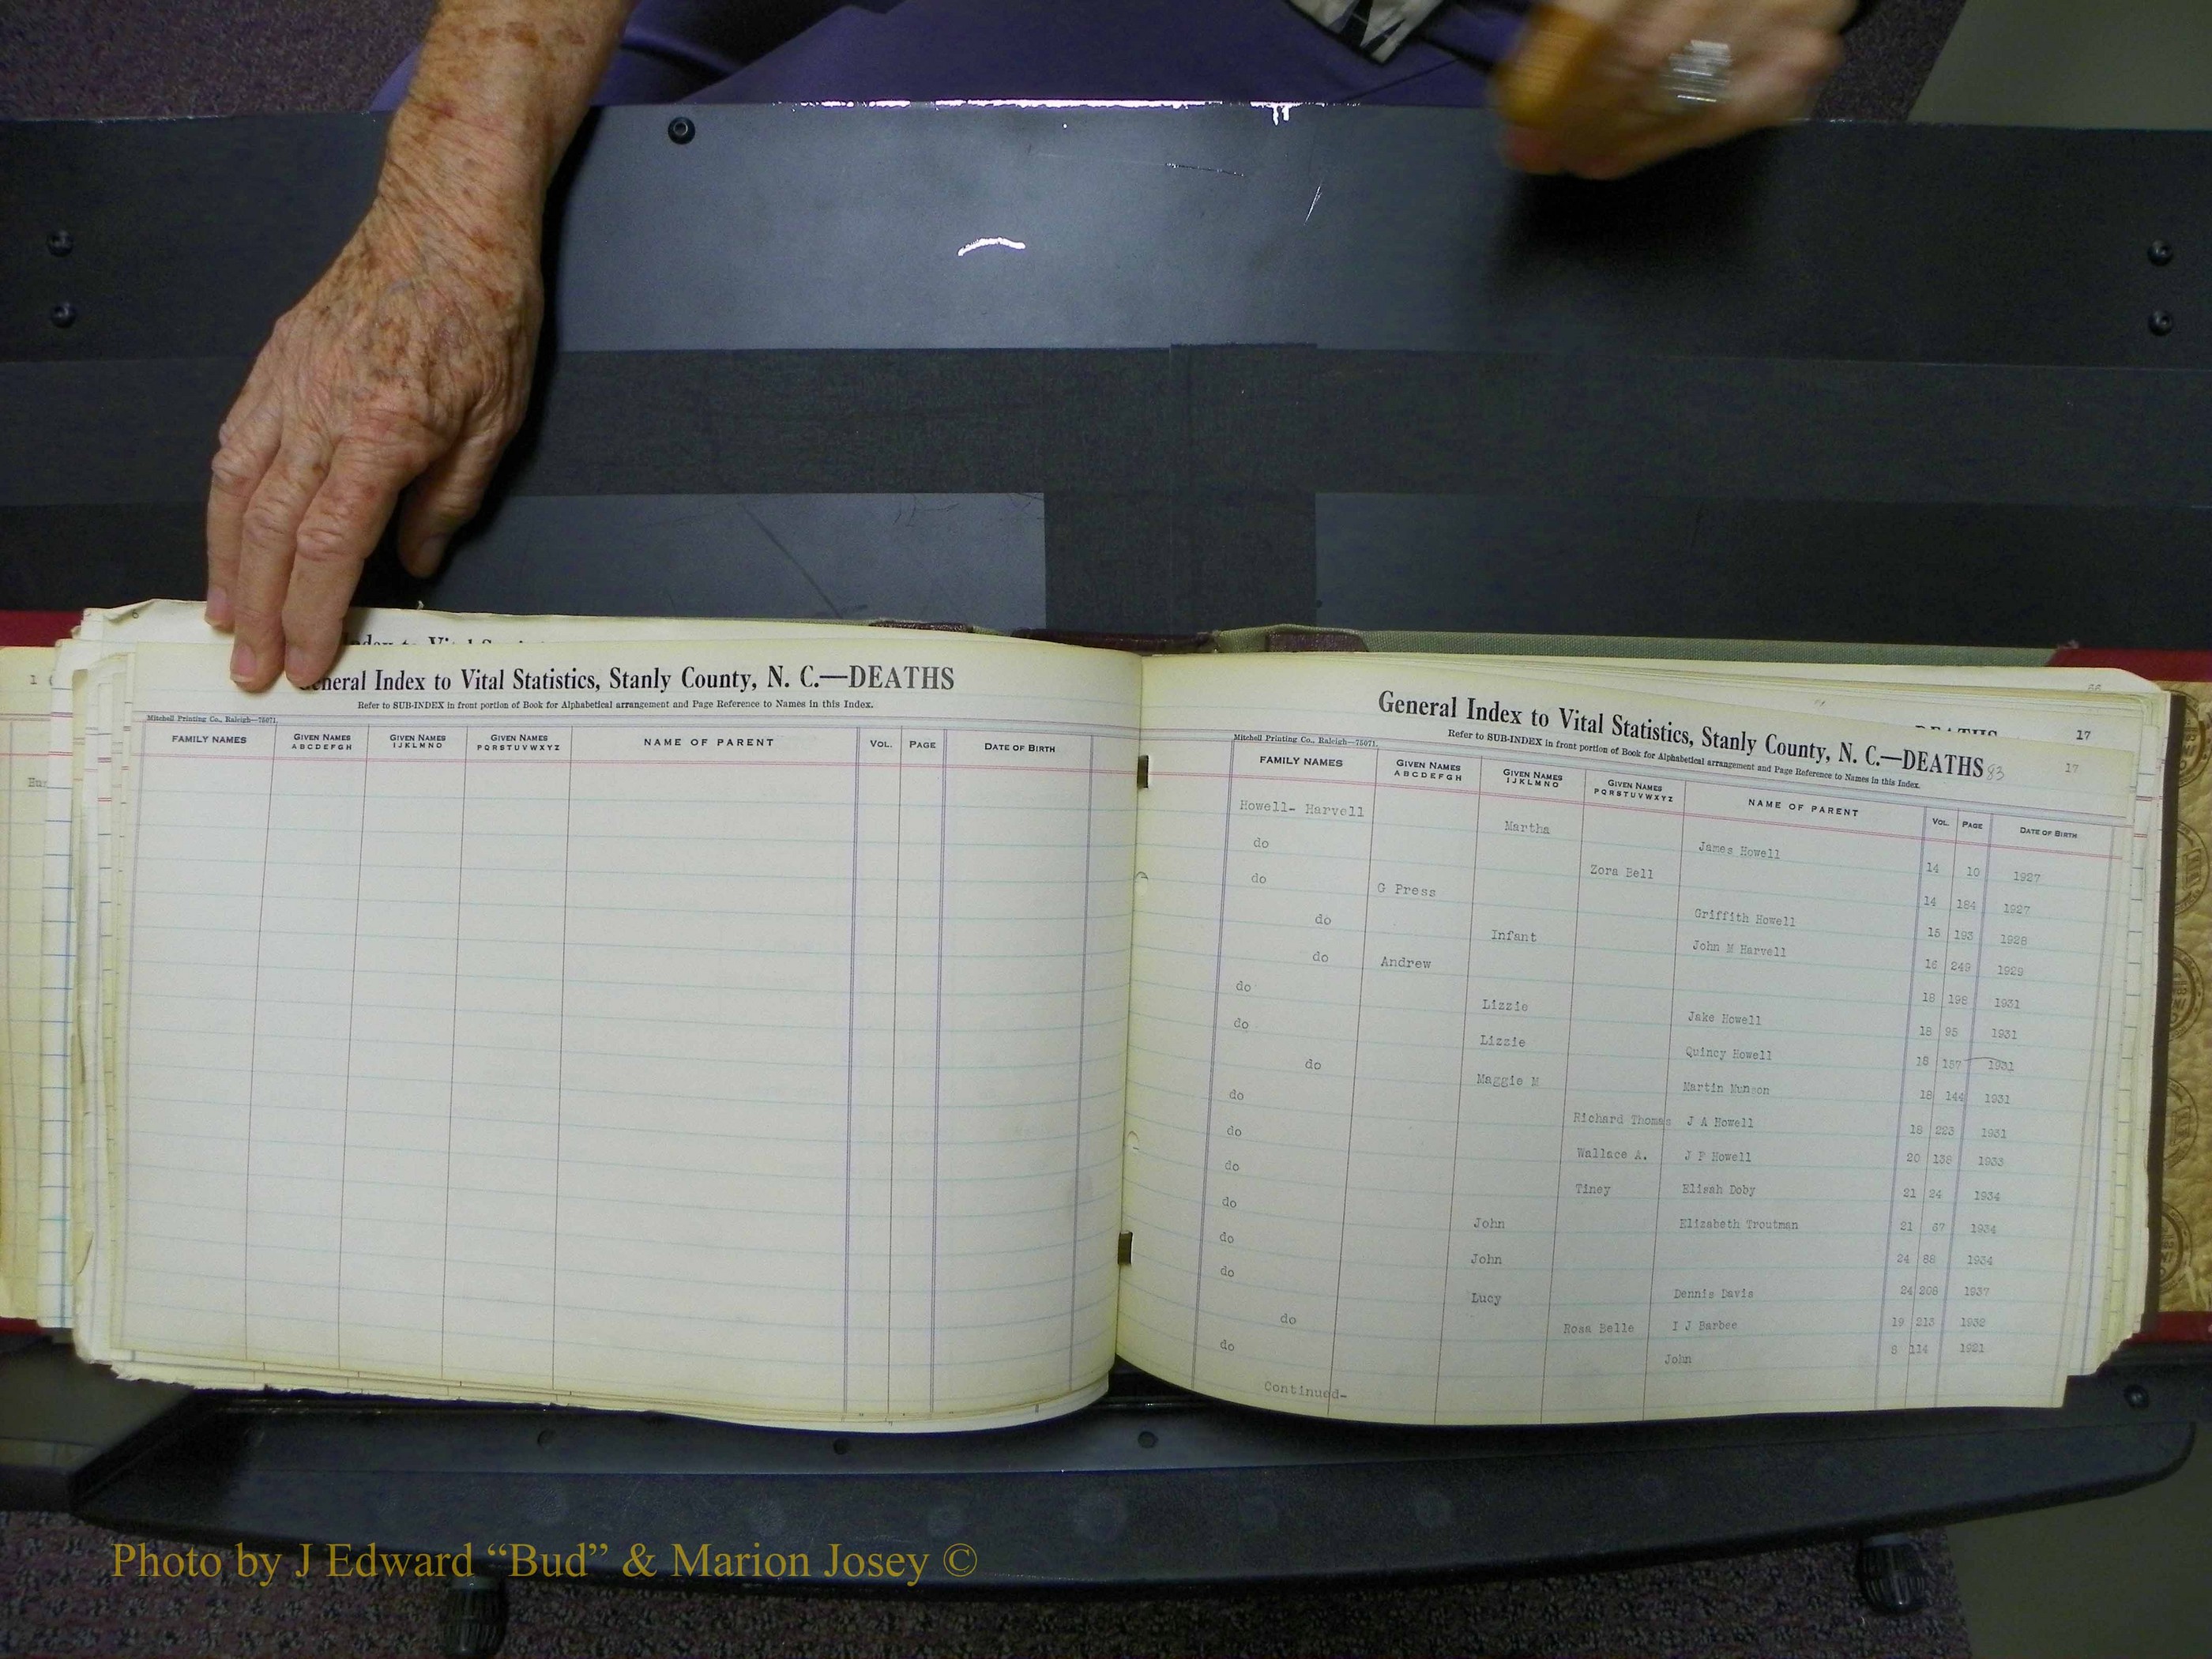 General Index to Vital Statistics, Stanly County, N. C.—DEATHS
Refer to SUB-INDEX in front portion of Book for Alphabetical arrangement and Page Reference to Names in this Index.
Mitchell Printing Co., Raleigh—75071.
FAMILY NAMES GIVEN NAMES ABCDEFGH GIVEN NAMES IJKLMNO GIVEN NAMES PQRSTUVWXYZ NAME OF PARENT VOL. PAGE DATE OF BIRTH
DEATHS 17
General Index to Vital Statistics, Stanly County, N. C.—DEATHS 83 17
Refer to SUB-INDEX in front portion of Book for Alphabetical arrangement and Page Reference to Names in this Index.
Mitchell Printing Co., Raleigh—75071.
FAMILY NAMES GIVEN NAMES ABCDEFGH GIVEN NAMES IJKLMNO GIVEN NAMES PQRSTUVWXYZ NAME OF PARENT VOL. PAGE DATE OF BIRTH
Howell- Harvell Martha James Howell 14 10 1927
do Zora Bell 14 184 1927
do G Press Griffith Howell 15 193 1928
do Infant John M Harvell 16 249 1929
do Andrew 18 198 1931
do Lizzie Jake Howell 18 95 1931
do Lizzie Quincy Howell 18 157 1931
do Maggie M Martin Munson 18 144 1931
do Richard Thomas J A Howell 18 223 1931
do Wallace A. J P Howell 20 138 1933
do Tiney Elisah Doby 21 24 1934
do John Elizabeth Troutman 21 67 1934
do John 24 88 1934
do Lucy Dennis Davis 24 208 1937
do Rosa Belle I J Barbee 19 213 1932
do John 8 114 1921
Continued-
Photo by J Edward “Bud” & Marion Josey ©